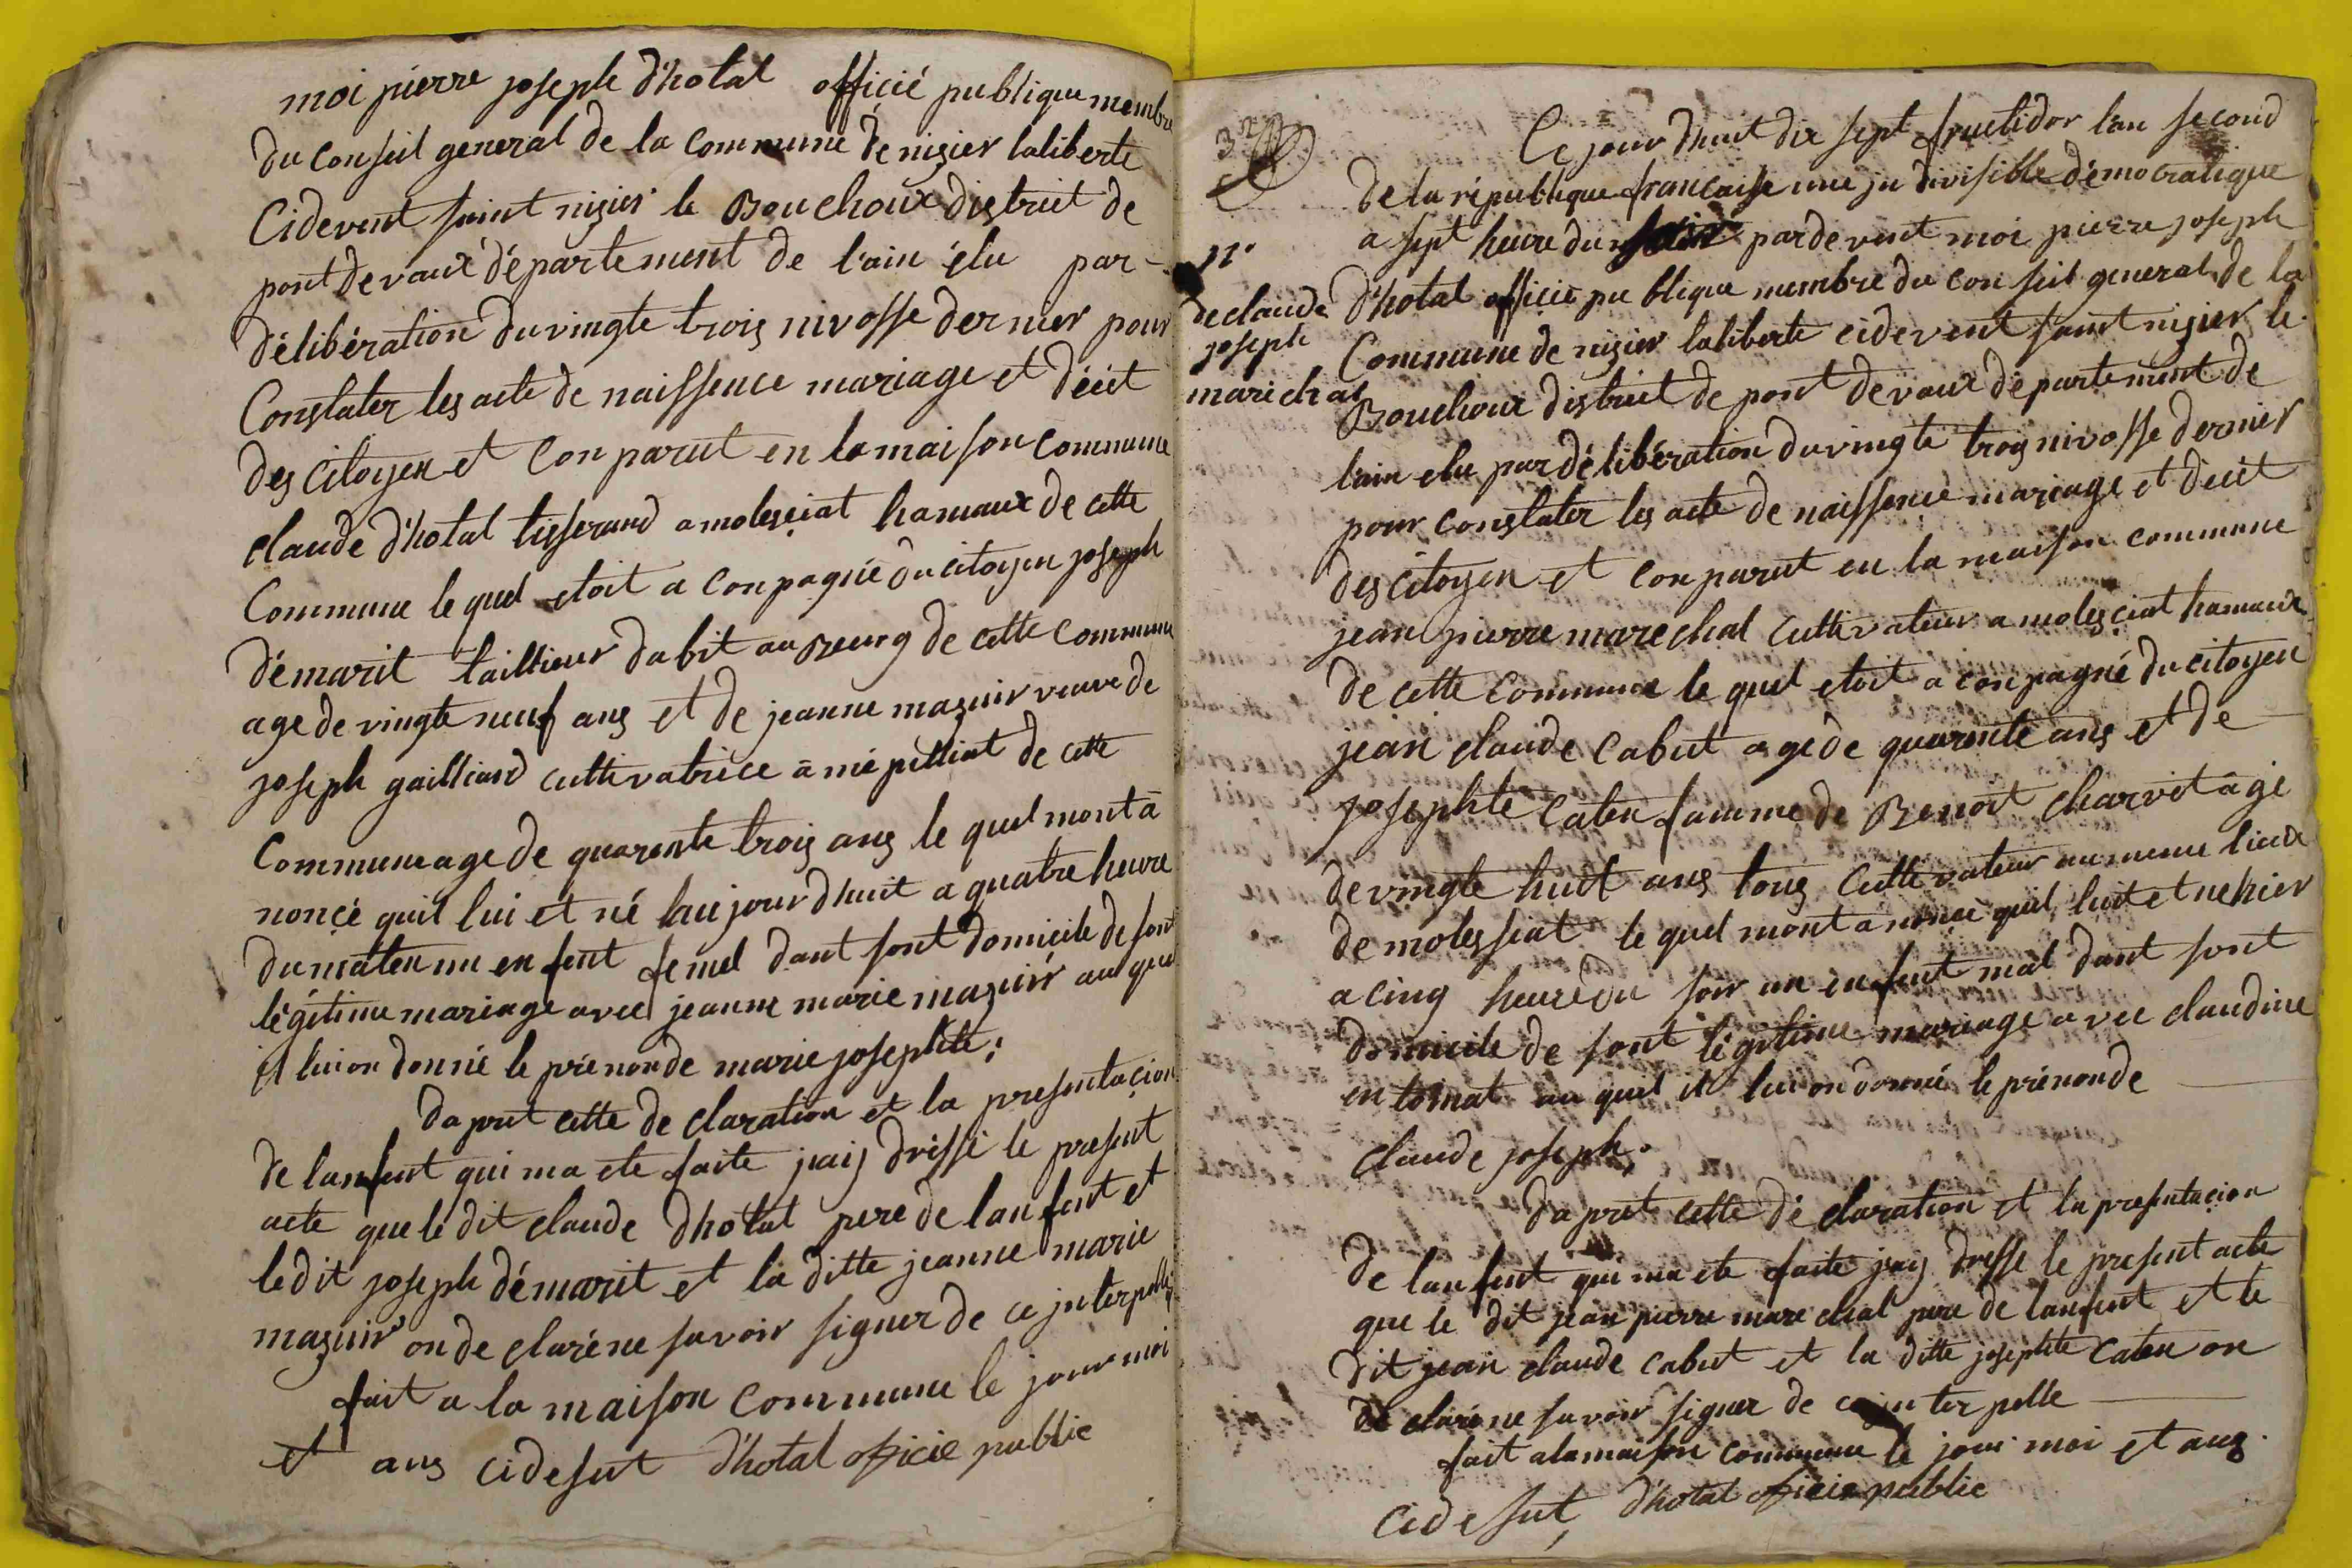 moi pierre joseph d'hotal officié publique membre
du conseil general de la commune de nizier laliberte
Cidevent saint nizier le Bouchoux district de
pont de vaux département de l'ain élu par -
délibération du vingte trois nivosse dernier pour
Constater les acte de naissence mariage et décit
des citoyen et Conparut en la maison commune
claude d'hotal tisserand a molesciat hamaux de cette
Commune le quel etoit a conpagné du citoyen joseph
démarit taillieur dabit au Bourg de cette commune
age de vingte neuf ans et de jeanne mazuir veuve de
joseph gailliard cultivatrice à mépilliat de cette
commune age de quarente trois ans le quel mont à
noncé quil lui et né haujourdhuit a quatre heure
du maten un enfent femel dant sont domicile de sont
légitime mariage avec jeanne marie mazuir au quel
il lui on donné le prénon de marie josephte ;
da prit cette de claration et la presentacion
de lanfent qui ma ete faite jaij dréssé le present
acte que le dit claude dhotal pere de lanfent et
le dit joseph démarit et la ditte jeanne marie
mazuir on de claré ne savoir signer de ce interpellé
fait a la maison commune le jour moi
et ans cidesut d'hotal officie public
32
Ce jourdhuit dix sept fructidor lan second
de la république francaise une indivisible démocratique
a sept heure du par devent moi pierre joseph
n.
de claude
joseph
marichal
d'hotal officié publique membre du conseil general de la
Commune de nizier laliberte cidevent saint nizier le
Bouchoux district de pont de vaux département de
l'ain elu par délibération du vingte trois nivosse dernier
pour constater les acte de naissence mariage et decit
des citoyen et conparut en la maison commune
jean pierre marechal cultivateur a molesciat hamaux
de cette commune le quel etoit a conpagné du citoyen
jean claude Cabut age de quarente ans et de
josephte Caten famme de Benoit charvet age
de vingte huit ans tous cultivateur au meme lieux
de molessiat le quel mont a noncé quil luit et ne hier
a cinq heure du soir un enfent mal dant sont
domicile de sont légitime mariage avec claudine
en toinat au quel il lui on donné le prénon de
claude joseph ;
da prit cette dé claration et la presentacion
de lanfent qui ma ete faite jaij dressé le present acte
que le dit jean pierre mare chal pere de lanfent et le
dit jean claude cabut et la ditte josephte Caten on
de claré ne savoir signer de ce interpelle
fait a la maison commune le jour moi et ans
cidesut, d'hotal officie public